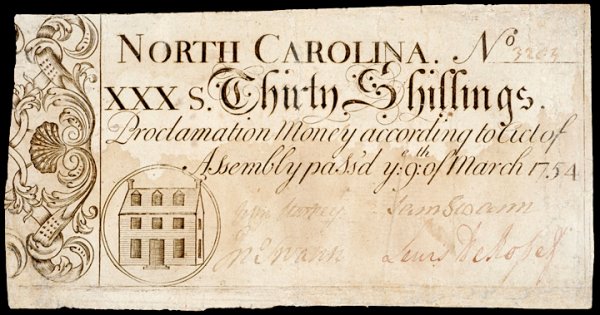 NORTH CAROLINA. No 3203
XXX S. Thirty Shillings.
Proclamation Money according to Act of
Assembly pass'd ye. 9th. of March 1754
Sam Swann
Jno Swann Lewis DeRosset